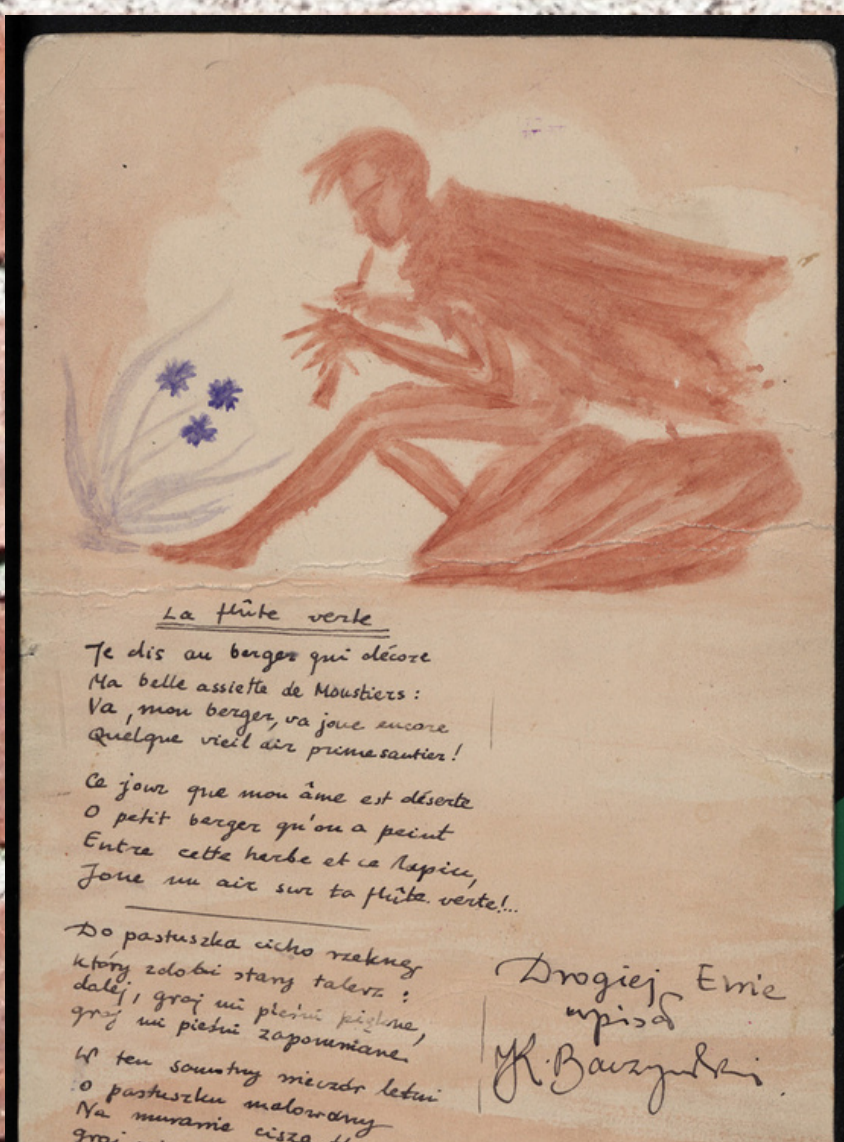 La flûte verte
Je dis au berger qui décore
Ma belle assiette de Moustiers :
Va, mon berger, va joue encore
Quelque vieil air primesautier!
Ce jour que mon âme est déserte
O petit berger qu'on a peint
Entre cette herbe et ce lapin,
Joue un air sur ta flûte verte!...
Do pastuszka cicho rzeknę
który zdobi stary talerz :
dalej, graj mi pieśni piękne,
graj mi pieśni zapomniane.
W ten samotny wieczór letni
o pastuszku malowany
Na muranie cisza
graj
Drogiej Ewie
wpisał
JK. Baczyński.